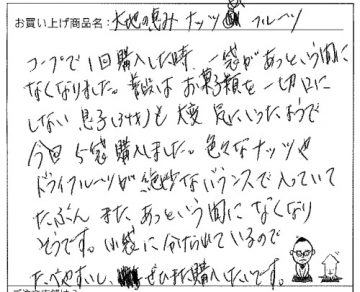 お買い上げ商品名：大地の恵み ナッツ フルーツ
コープで1回購入した時、一袋があっという間に
なくなりました。普段は お菓子類を 一切口に
しない 息子(34才)も大変 気にいったようで
今回 5袋 購入しました。色々なナッツや
ドライフルーツが絶妙なバランスで入っていて
たぶん また あっという間に なくなり
そうです。小袋に分けられているので
たべやすいし、ぜひまた購入したいです。